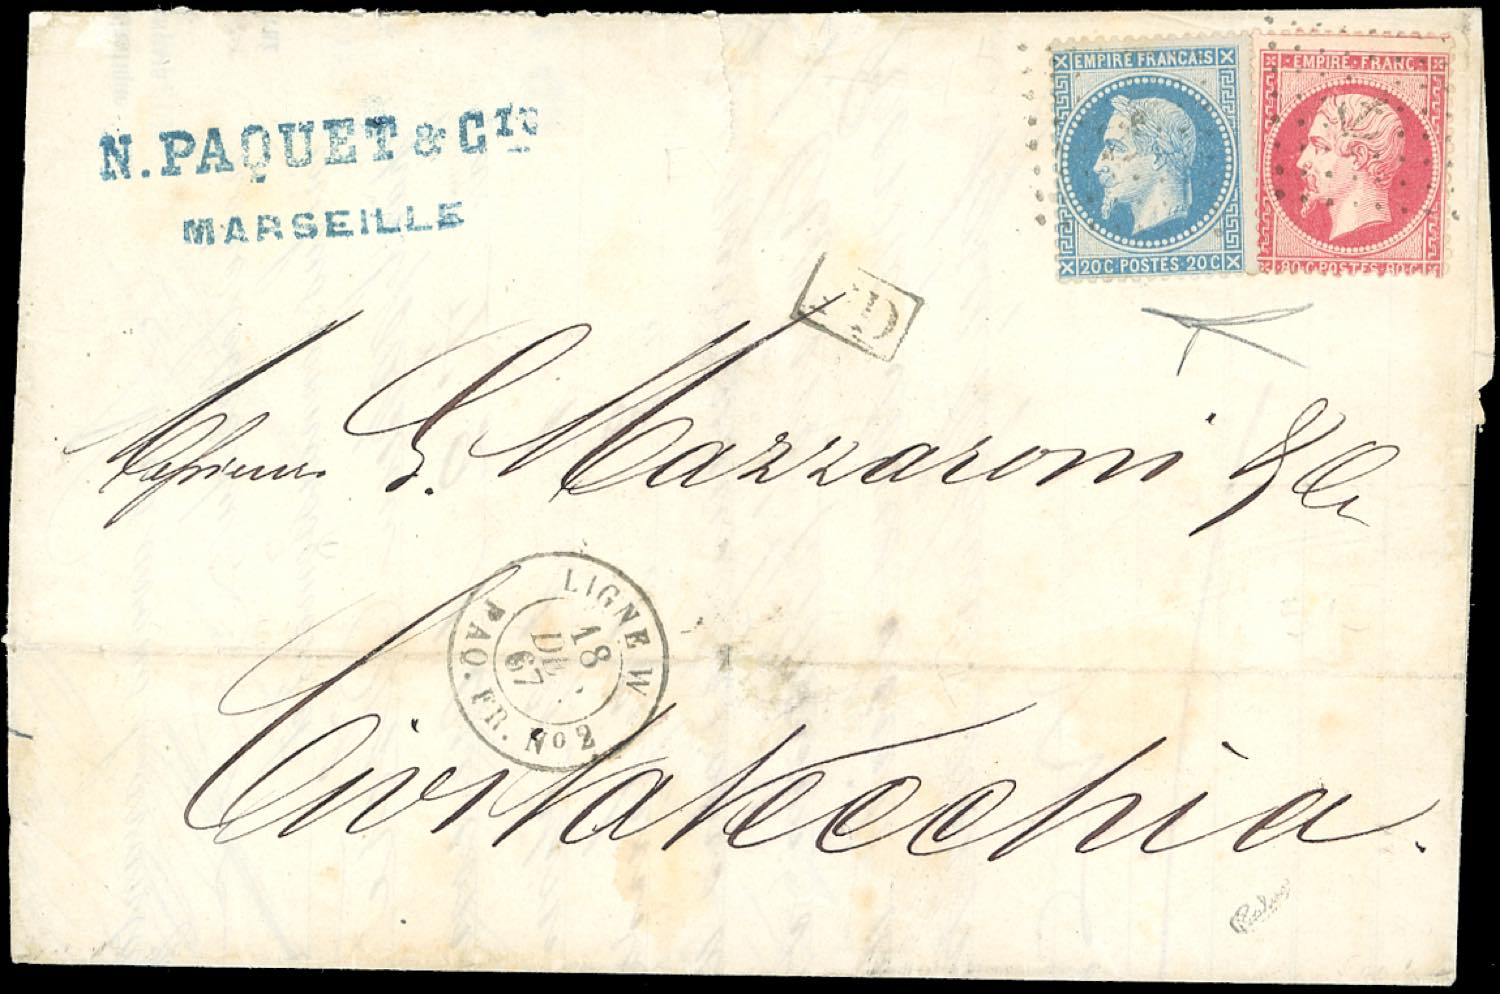 N. PAQUET & CIE
MARSEILLE
EMPIRE FRANCAIS
20 C POSTES 20 C
EMPIRE FRANC
80 C POSTES 80 C
PD
Messieurs G. Mazzaroni & Cie
LIGNE W
18
DEC
67
PAQ. FR. No 2
Civitavecchia.